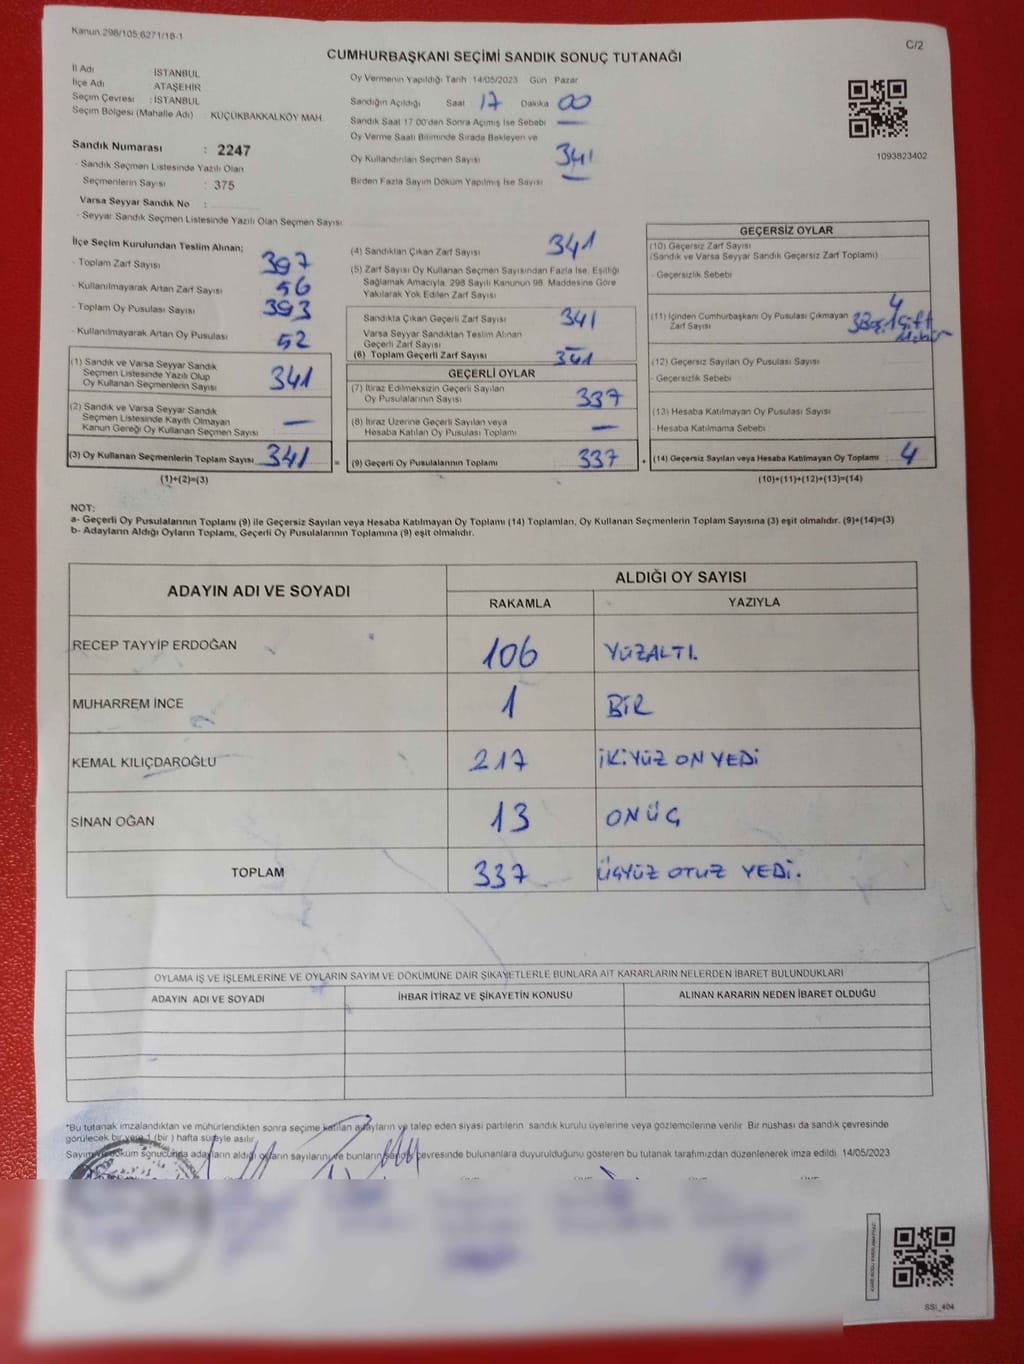 Kanun 298/105;6271/18-1
C/2
CUMHURBAŞKANI SEÇİMİ SANDIK SONUÇ TUTANAĞI
İl Adı : İSTANBUL
İlçe Adı : ATAŞEHİR
Seçim Çevresi : İSTANBUL
Seçim Bölgesi (Mahalle Adı) : KÜÇÜKBAKKALKÖY MAH.
Sandık Numarası : 2247
- Sandık Seçmen Listesinde Yazılı Olan
Seçmenlerin Sayısı : 375
Varsa Seyyar Sandık No :
- Seyyar Sandık Seçmen Listesinde Yazılı Olan Seçmen Sayısı:
Oy Vermenin Yapıldığı Tarih 14/05/2023 Gün Pazar
Sandığın Açıldığı Saat 17 Dakika 00
Sandık Saat 17:00'den Sonra Açılmış İse Sebebi —
Oy Verme Saati Bitiminde Sırada Bekleyen ve
Oy Kullandırılan Seçmen Sayısı 341
Birden Fazla Sayım Döküm Yapılmış İse Sayısı —
1093823402
İlçe Seçim Kurulundan Teslim Alınan;
- Toplam Zarf Sayısı 397
- Kullanılmayarak Artan Zarf Sayısı 56
- Toplam Oy Pusulası Sayısı 393
- Kullanılmayarak Artan Oy Pusulası 52
(1) Sandık ve Varsa Seyyar Sandık
Seçmen Listesinde Yazılı Olup
Oy Kullanan Seçmenlerin Sayısı 341
(2) Sandık ve Varsa Seyyar Sandık
Seçmen Listesinde Kayıtlı Olmayan
Kanun Gereği Oy Kullanan Seçmen Sayısı —
(3) Oy Kullanan Seçmenlerin Toplam Sayısı 341
(1)+(2)=(3)
(4) Sandıktan Çıkan Zarf Sayısı 341
(5) Zarf Sayısı Oy Kullanan Seçmen Sayısından Fazla İse, Eşitliği
Sağlamak Amacıyla, 298 Sayılı Kanunun 98. Maddesine Göre
Yakılarak Yok Edilen Zarf Sayısı
Sandıkta Çıkan Geçerli Zarf Sayısı 341
Varsa Seyyar Sandıktan Teslim Alınan
Geçerli Zarf Sayısı —
(6) Toplam Geçerli Zarf Sayısı 341
GEÇERLİ OYLAR
(7) İtiraz Edilmeksizin Geçerli Sayılan
Oy Pusulalarının Sayısı 337
(8) İtiraz Üzerine Geçerli Sayılan veya
Hesaba Katılan Oy Pusulası Toplamı —
= (9) Geçerli Oy Pusulalarının Toplamı 337
GEÇERSİZ OYLAR
(10) Geçersiz Zarf Sayısı
(Sandık ve Varsa Seyyar Sandık Geçersiz Zarf Toplamı)
- Geçersizlik Sebebi
(11) İçinden Cumhurbaşkanı Oy Pusulası Çıkmayan
Zarf Sayısı 4
3 Boş, 1 Çift
Mühür
(12) Geçersiz Sayılan Oy Pusulası Sayısı
- Geçersizlik Sebebi
(13) Hesaba Katılmayan Oy Pusulası Sayısı
- Hesaba Katılmama Sebebi
+ (14) Geçersiz Sayılan veya Hesaba Katılmayan Oy Toplamı 4
(10)+(11)+(12)+(13)=(14)
NOT:
a- Geçerli Oy Pusulalarının Toplamı (9) ile Geçersiz Sayılan veya Hesaba Katılmayan Oy Toplamı (14) Toplamları, Oy Kullanan Seçmenlerin Toplam Sayısına (3) eşit olmalıdır. (9)+(14)=(3)
b- Adayların Aldığı Oyların Toplamı, Geçerli Oy Pusulalarının Toplamına (9) eşit olmalıdır.
ADAYIN ADI VE SOYADI
ALDIĞI OY SAYISI
RAKAMLA YAZIYLA
RECEP TAYYİP ERDOĞAN 106 YÜZALTI.
MUHARREM İNCE 1 BİR
KEMAL KILIÇDAROĞLU 217 İKİYÜZ ON YEDİ
SİNAN OĞAN 13 ONÜÇ
TOPLAM 337 ÜÇYÜZ OTUZ YEDİ.
OYLAMA İŞ VE İŞLEMLERİNE VE OYLARIN SAYIM VE DÖKÜMÜNE DAİR ŞİKAYETLERLE BUNLARA AİT KARARLARIN NELERDEN İBARET BULUNDUKLARI
ADAYIN ADI VE SOYADI İHBAR İTİRAZ VE ŞİKAYETİN KONUSU ALINAN KARARIN NEDEN İBARET OLDUĞU
*Bu tutanak imzalandıktan ve mühürlendikten sonra seçime katılan adayların ve talep eden siyasi partilerin sandık kurulu üyelerine veya gözlemcilerine verilir. Bir nüshası da sandık çevresinde
görülecek bir yere 1 (bir ) hafta süreyle asılır.
Sayım ve döküm sonucunda adayların aldığı oyların sayılarını ve bunların sandık çevresinde bulunanlara duyurulduğunu gösteren bu tutanak tarafımızdan düzenlenerek imza edildi. 14/05/2023
SSI_404